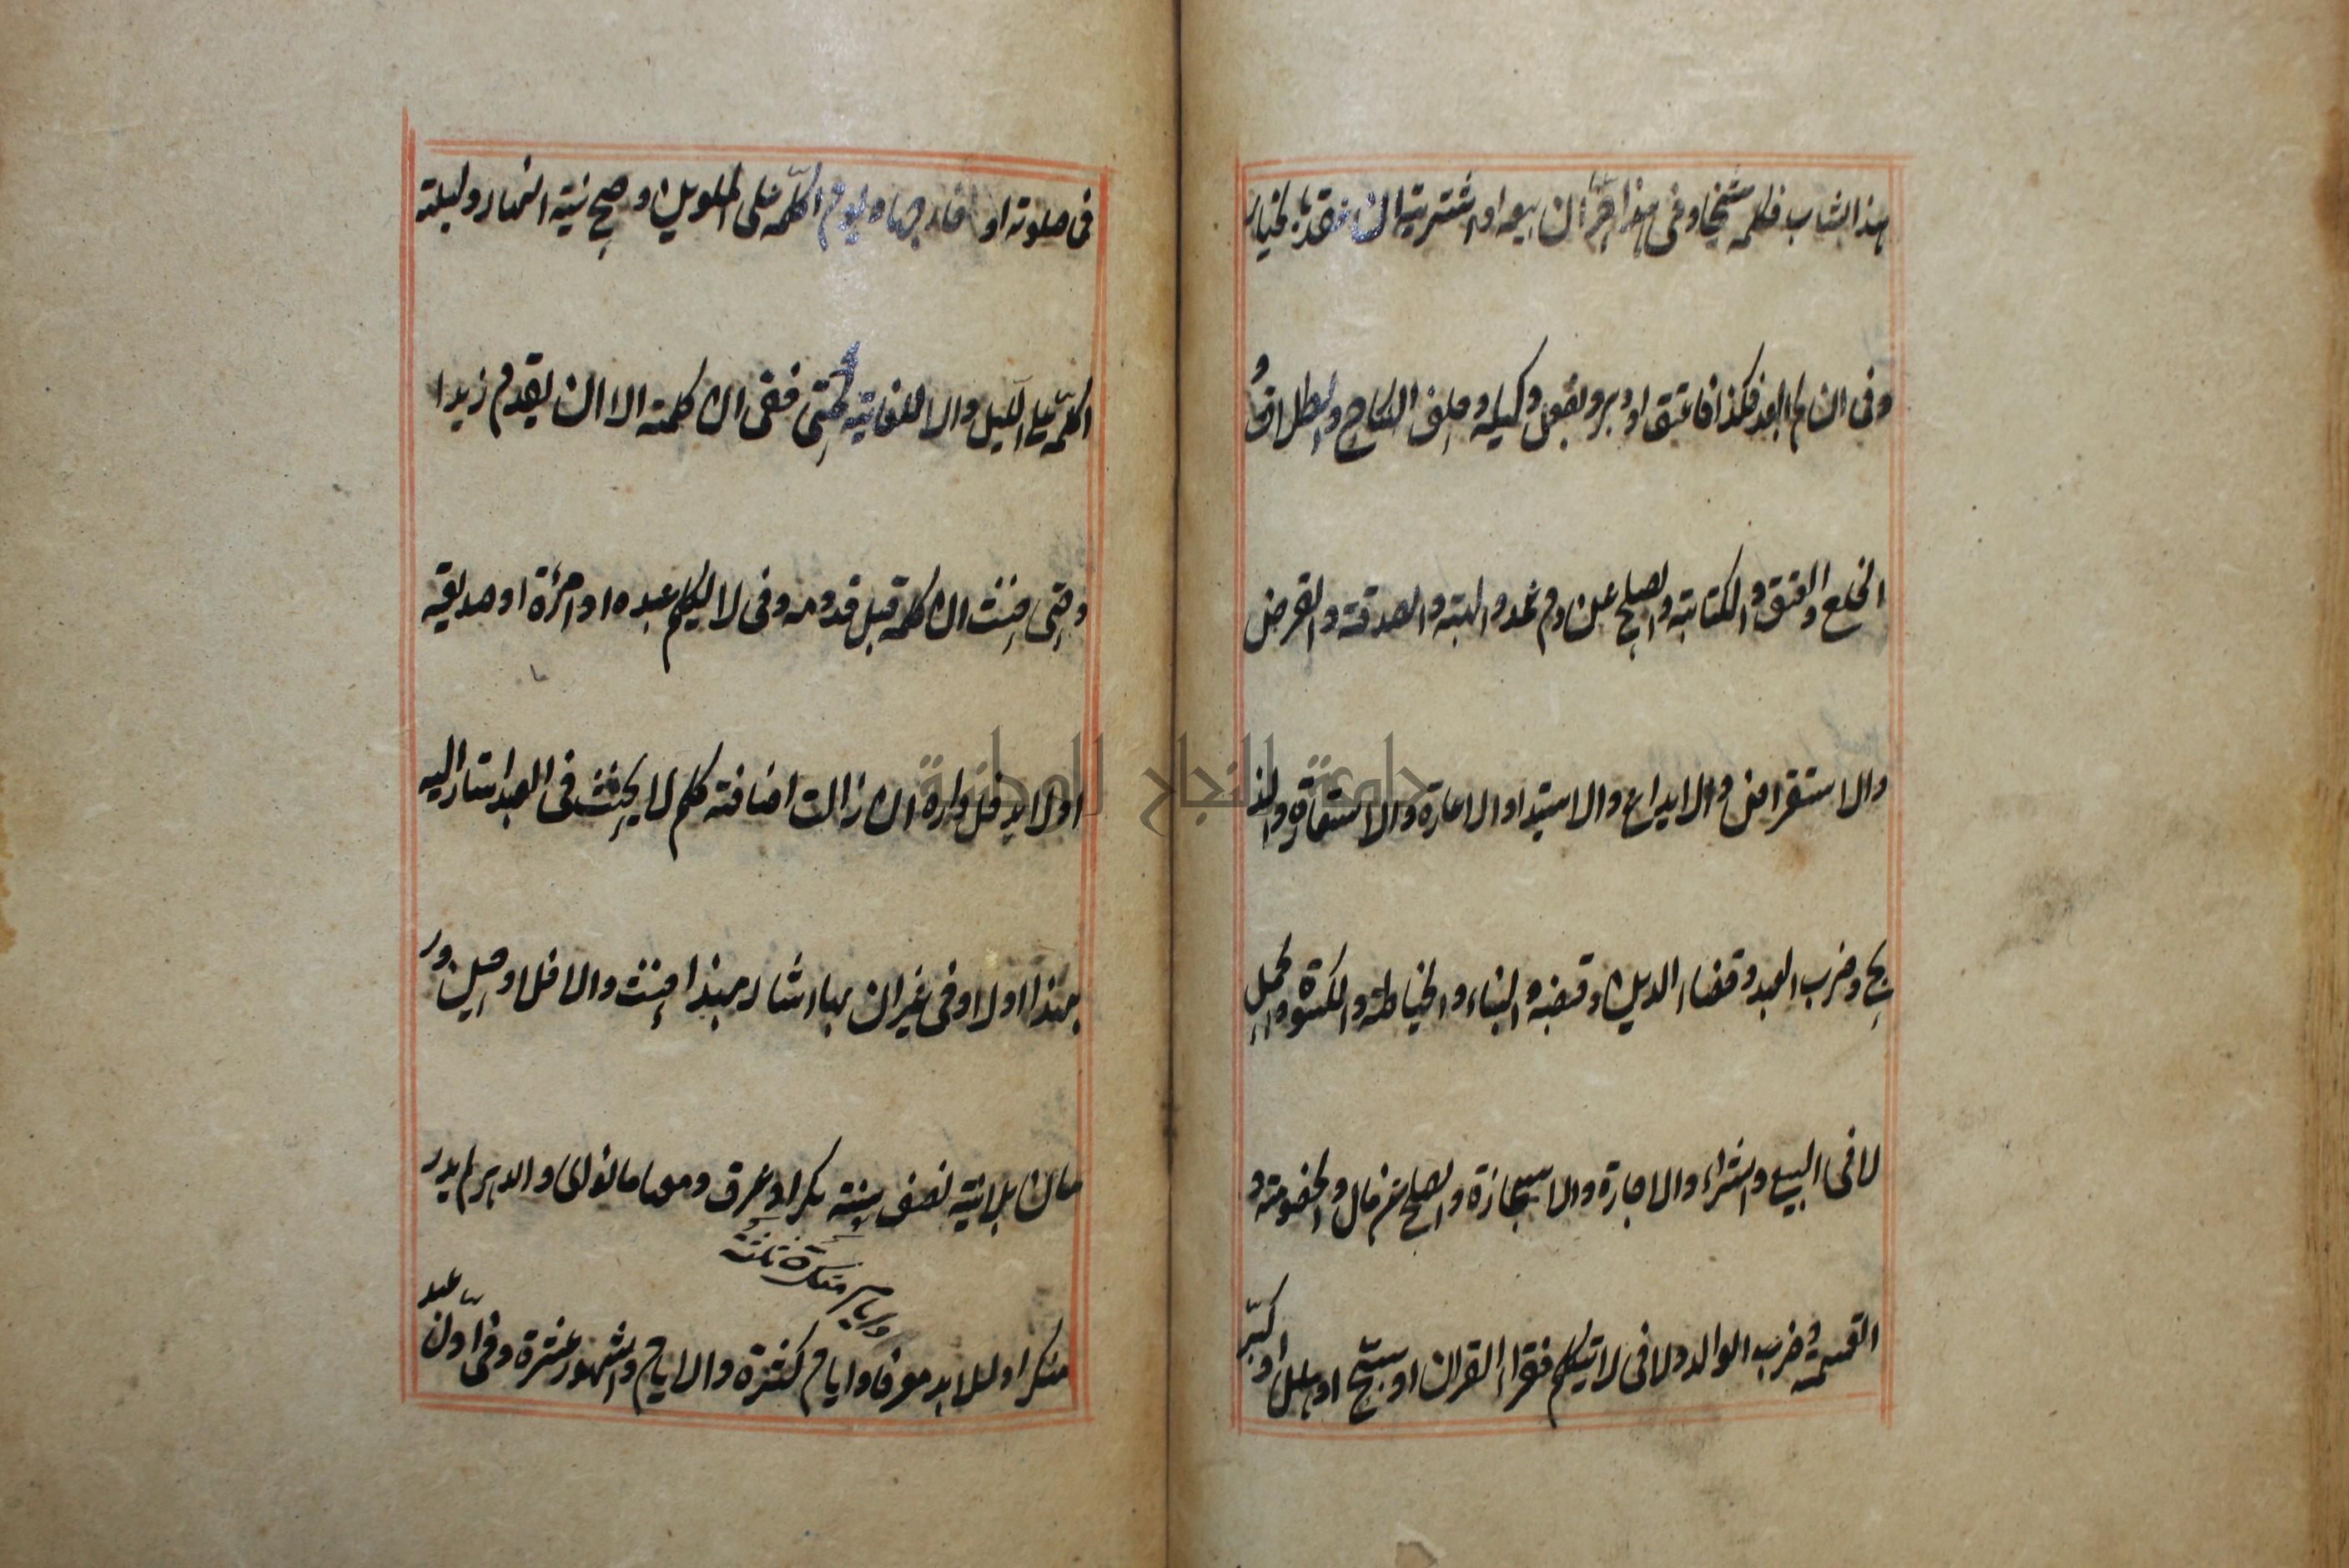 هذا الشاب فكلمه شيخا وفى هذا حر ان بيعه او اشتريته ان عقد بالخيار
وفى ان لم ابعه فكذا فاعتق او دبر وبفعل وكيله وحلف النكاح والطلاق
الخلع والعتق والكتابة والصلح عن دم عمد والهبة والصدقة والقرض
والاستقراض والايداع والاستيداع والاعارة والاستعارة والذ
بح وضرب العبد وقضاء الدين وقبضه والبناء والخياطة والكسوة والحمل
لا فى البيع والشراء والاجارة والاستيجارة والصلح عن مال والخصومة و
القسمة وضرب الوالد ولا فى لا يتكلم فقراء القران او سبح او هلل او كبر
فى صلوته او خارجها ويوم اكلمه على الملوين وصح نية النهار وليلة
اكلمه على الليل والا ان للغاية كحتى ففى ان كلمته الا ان يقدم زيد ا
وحتى حنث ان كلمه قبل قدومه وفى لا يكلم عبده او امرأة او صديقه
او لا يدخل داره ان زالت اضافته كلم لا يحنث فى العبد اشار اليه
بهذا او لا وفى غيره ان بها اشار بهذا حنث والا فلا وحين ور
مان بلا نية نصف سنة نكر او عرف ومعها ما نوى والدهر لم يدر
وايام منكرة ثلثة
منكرا وللابد معرفا وايام كثيرة والايام والشهور عشرة وفى اول
عبد
جامعة النجاح الوطنية